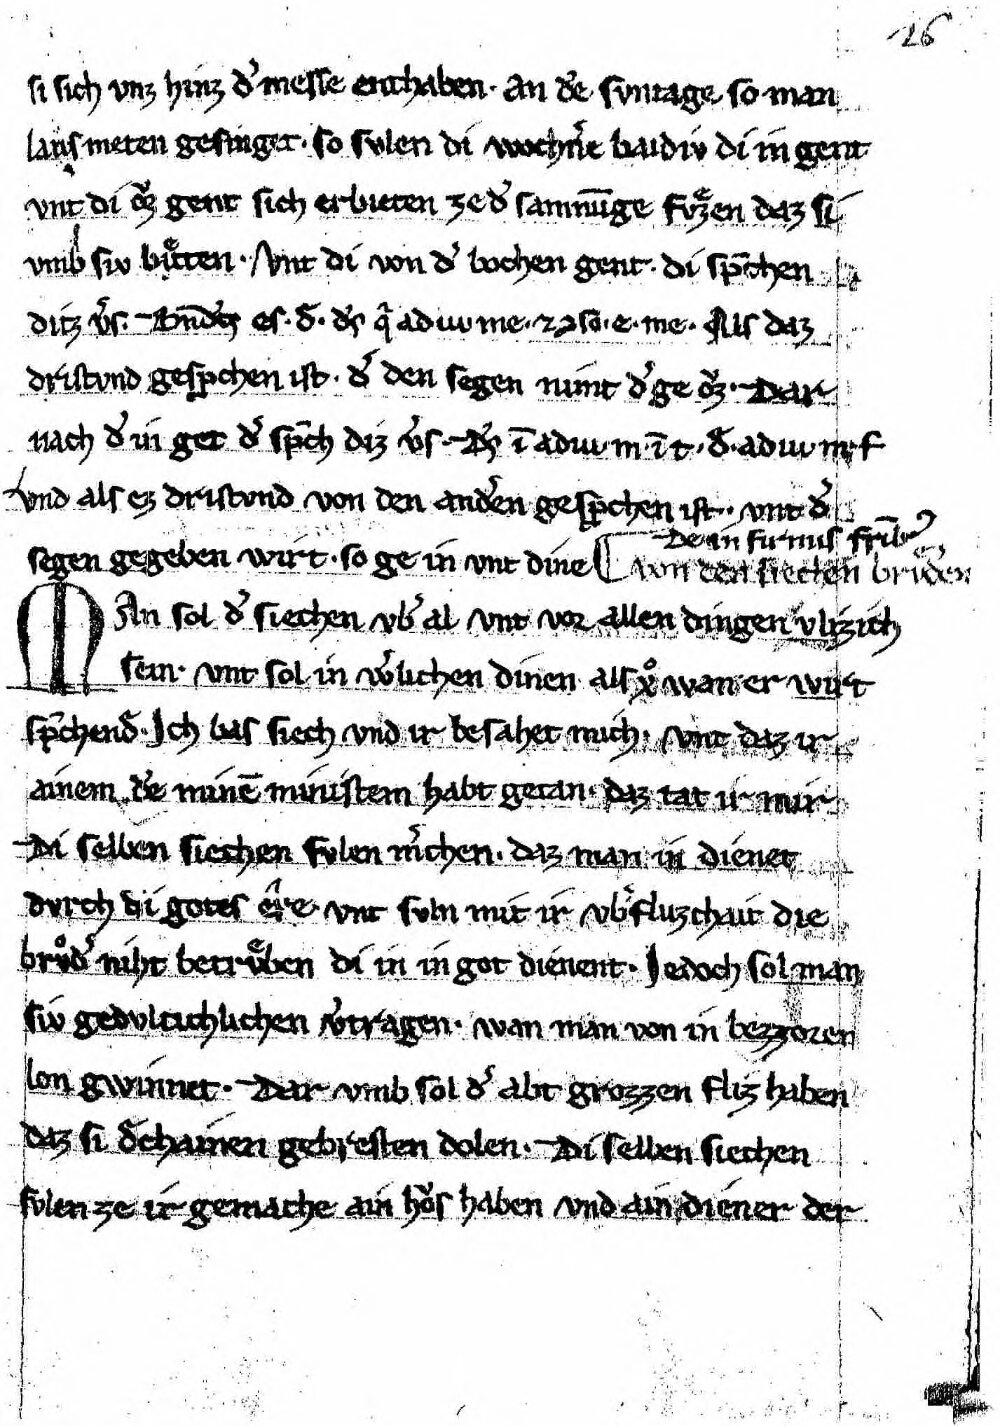 26
si sich vnz hinz d̾ messe enthaben· An d̾e svntage so man
laus meten gesinget· so svlen di wochn̾e baidiv di in gent
vnt di ovz gent sich erbieten ze d̾ samnu̅ge fvͤzzen daz si
vmb siv biͤtten· Vnt di von d̾ bochen gent· di sp̅chen
ditz v̾s· es· d̾· ad iuu me· so· e· me· Als daz
dristvnd gesp̅chen ist· d̾ den segen nimt d̾ ge ovz· Dar
nach d̾ in get d̾ sp̅ch diz v̾s· D̾s i̅ adiuu m· i̅t· d̾· adiuu m· f
Vnd als ez dristvnd von den and̾en gesp̅chen ist· vnt d̾
segen gegeben wirt· so ge in vnt dine
De infirmis fr̅ib᷒
von den siechen brvͤdern
MAn sol d̾ siechen vb̾ al vnt vor allen dingen vlizich
sein· vnt sol in w̾lichen dinen als xͦ wan er wirt
sp̅chend̾· Ich bas siech vnd ir besahet mich· vnt daz ir
ainem d̾e mine̅ ministem habt getan· daz tat ir mir
Di selben siechen svlen m̾chen· daz man in dienet
dvrch di gotes ere· vnt svln mit ir vb̾fluzchait die
brvͦd̾ niht betrvͤben di in in got dienent· Iedoch sol man
siv gedvltichlichen v̾tragen· wan man von in bezzoren
lon gwinnet· Dar vmb sol d̾ abt grozzen fliz haben
daz si d̾chainen gebresten dolen· Di selben siechen
svlen ze ir gemache ain hovs haben vnd ain diener der